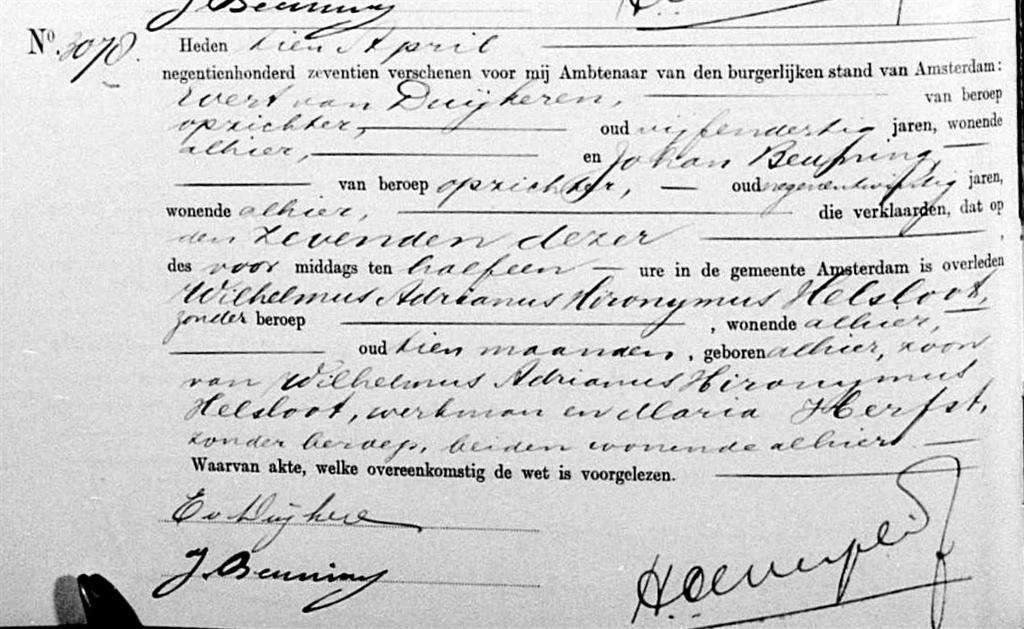 J. Beuning
Nº. 3078.
Heden tien April
negentienhonderd zeventien verschenen voor mij Ambtenaar van den burgerlijken stand van Amsterdam:
Evert van Duijkeren, van beroep
opzichter, oud vijfendertig jaren, wonende
alhier, en Johan Beuning,
van beroep opzichter, oud negenentwintig jaren,
wonende alhier, die verklaarden, dat op
den zevenden dezer
des voor middags ten halfeen ure in de gemeente Amsterdam is overleden
Wilhelmus Adrianus Hironymus Helsloot,
zonder beroep , wonende alhier,
oud tien maanden, geboren alhier, zoon
van Wilhelmus Adrianus Hironymus
Helsloot, werkman en Maria Herfst,
zonder beroep, beiden wonende alhier
Waarvan akte, welke overeenkomstig de wet is voorgelezen.
E v Duijkere
J. Beuning